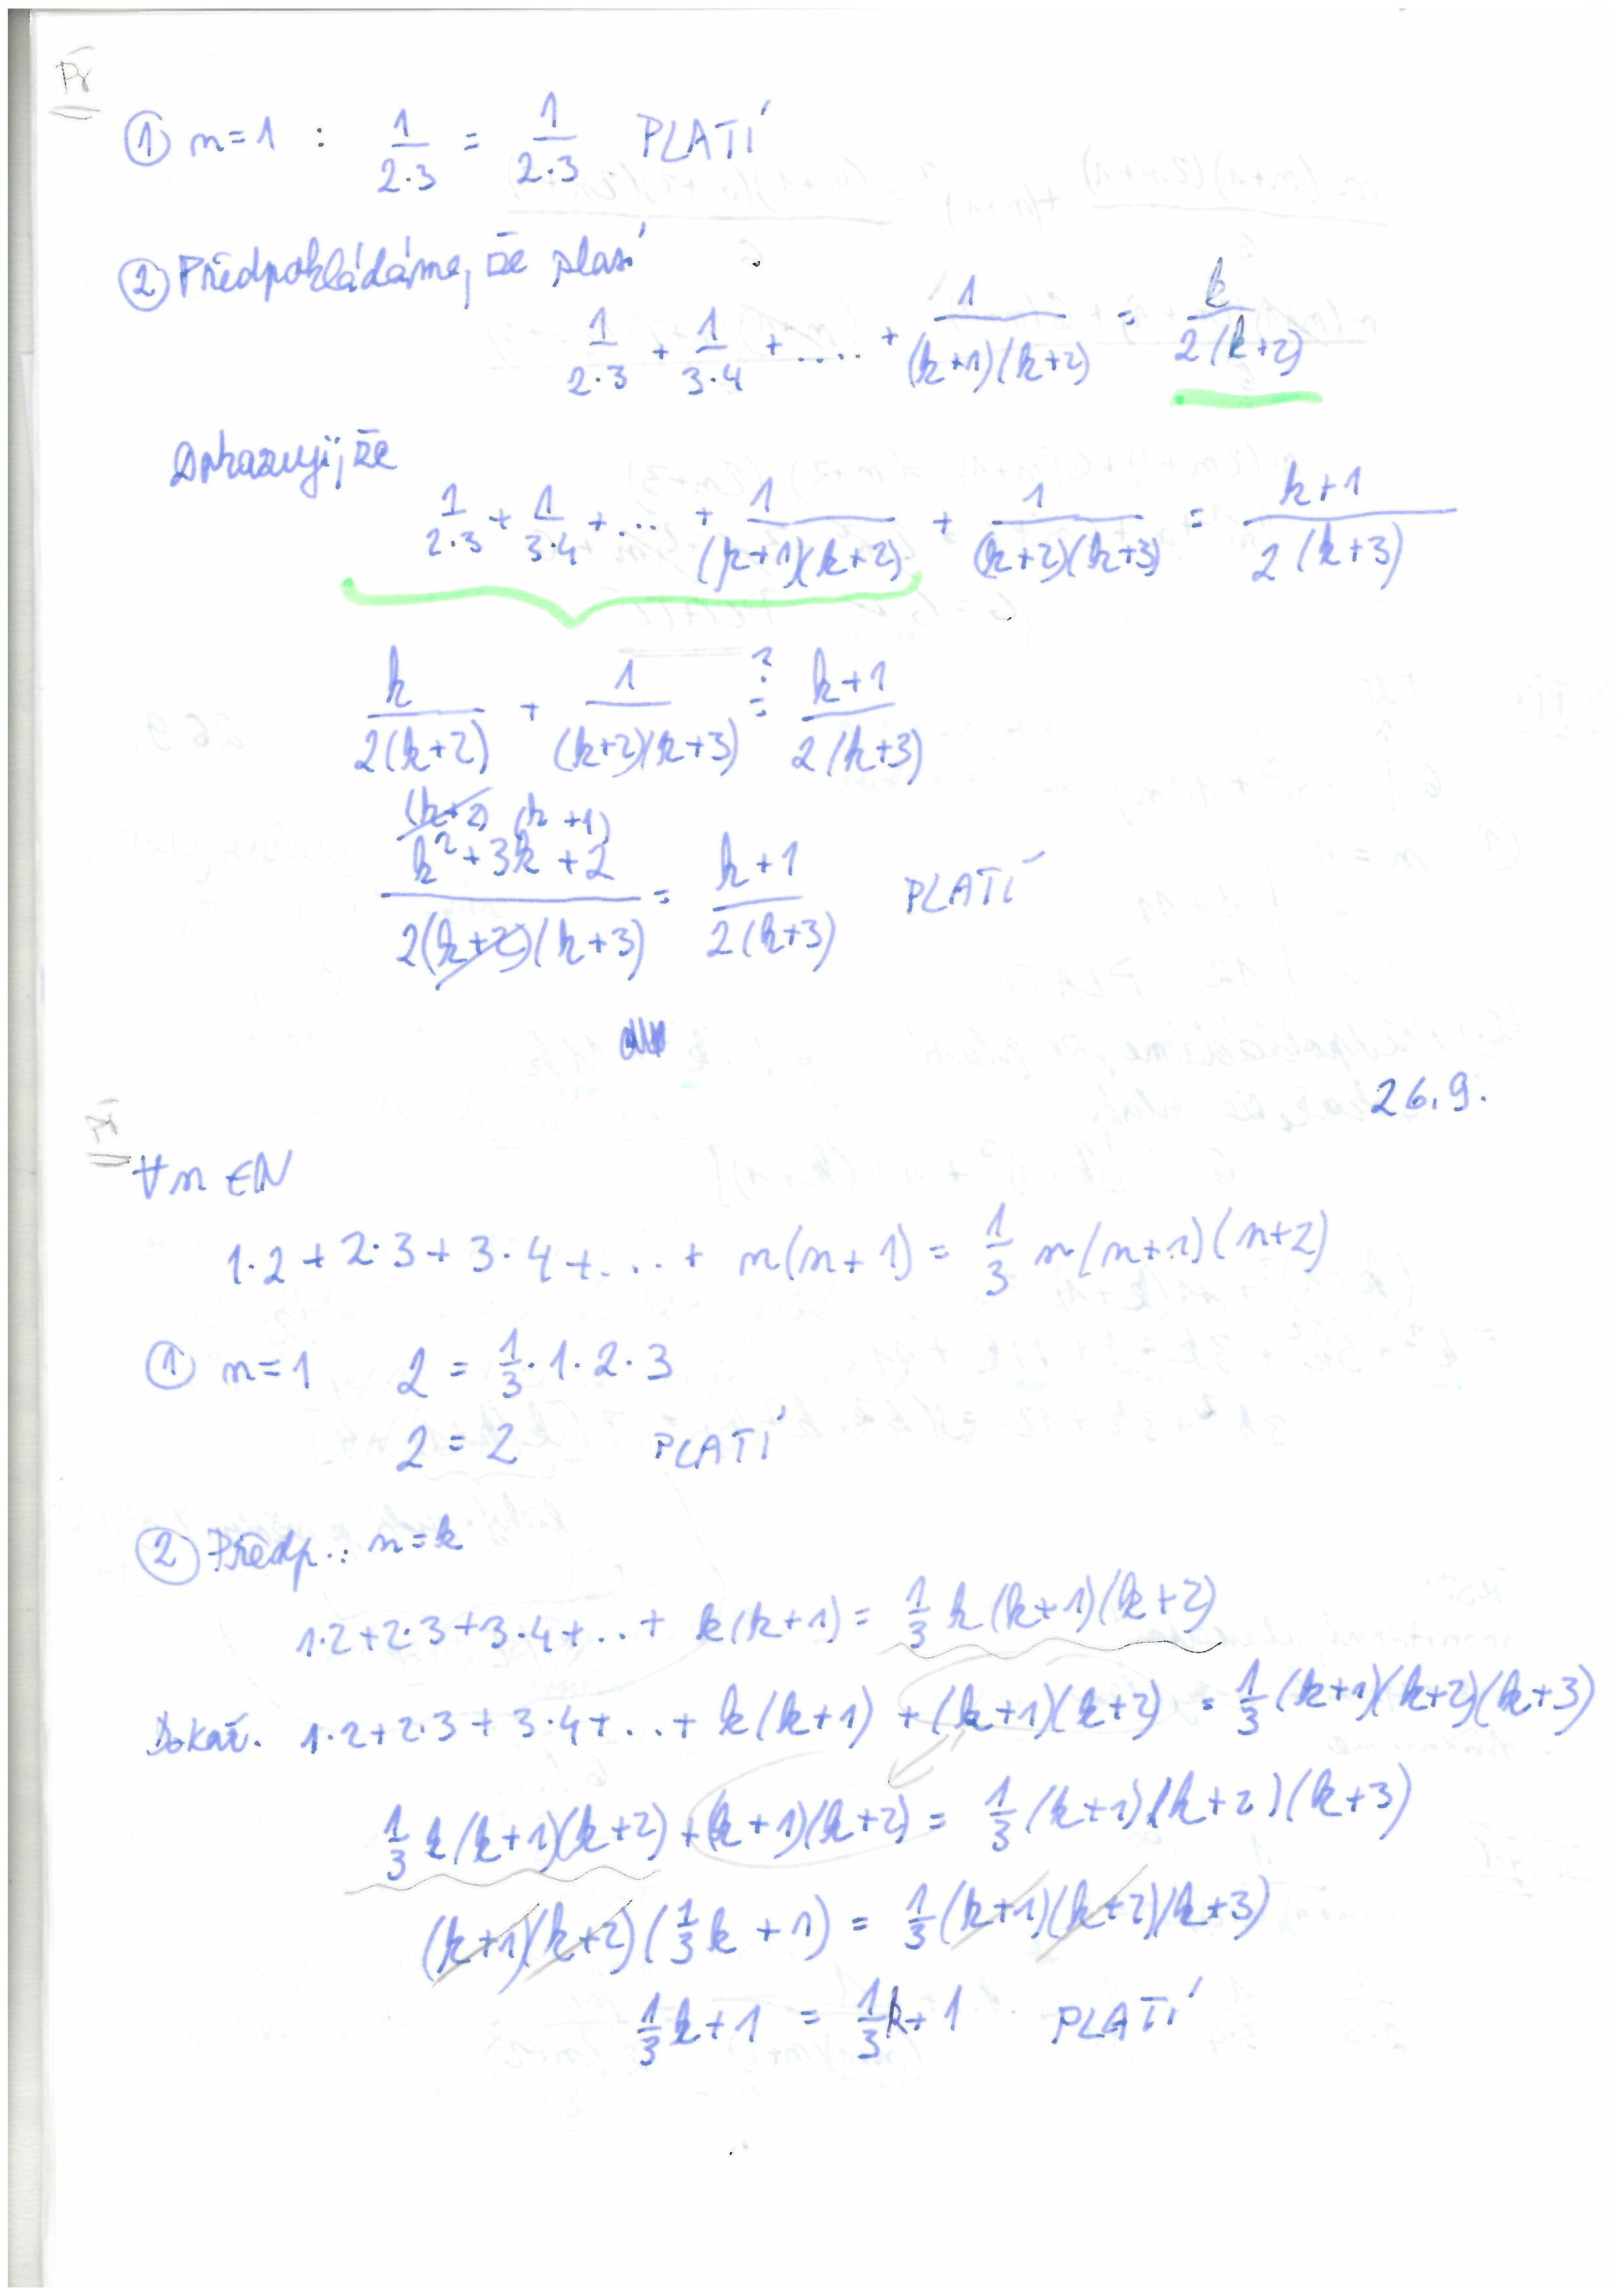 Př
① n=1 : 1/(2·3) = 1/(2·3) PLATÍ
② Předpokládáme, že platí
1/(2·3) + 1/(3·4) + .... + 1/((k+1)(k+2)) = k/(2(k+2))
Dokazuji, že
1/(2·3) + 1/(3·4) + ... + 1/((k+1)(k+2)) + 1/((k+2)(k+3)) = (k+1)/(2(k+3))
k/(2(k+2)) + 1/((k+2)(k+3)) ?= (k+1)/(2(k+3))
(k+2) (k+1)
(k²+3k+2)/(2(k+2)(k+3)) = (k+1)/(2(k+3)) PLATÍ
26.9.
Př
∀n∈N
1·2 + 2·3 + 3·4 + ... + n(n+1) = 1/3 n(n+1)(n+2)
① n=1 2 = 1/3·1·2·3
2 = 2 PLATÍ
② Předp.: n=k
1·2+2·3+3·4+...+ k(k+1) = 1/3 k(k+1)(k+2)
Dokaž. 1·2+2·3+3·4+...+ k(k+1) + (k+1)(k+2) = 1/3 (k+1)(k+2)(k+3)
1/3 k(k+1)(k+2) + (k+1)(k+2) = 1/3 (k+1)(k+2)(k+3)
(k+1)(k+2)(1/3 k + 1) = 1/3 (k+1)(k+2)(k+3)
1/3 k+1 = 1/3 k+1 PLATÍ